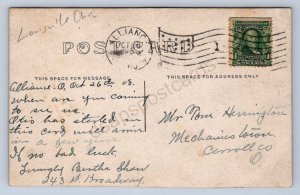 Louisville Ohio
ALLIANCE
OCT
POST CARD
THIS SPACE FOR MESSAGE
THIS SPACE FOR ADDRESS ONLY
Alliance, O, Oct 26th 08.
when are you coming
to see us
Otis has started in
this card will arrive
in a few
If no bad luck.
Bertha Shaw
243 W. Broadway.
Mr. Tom Herrington
Mechanicstown
Carroll Co